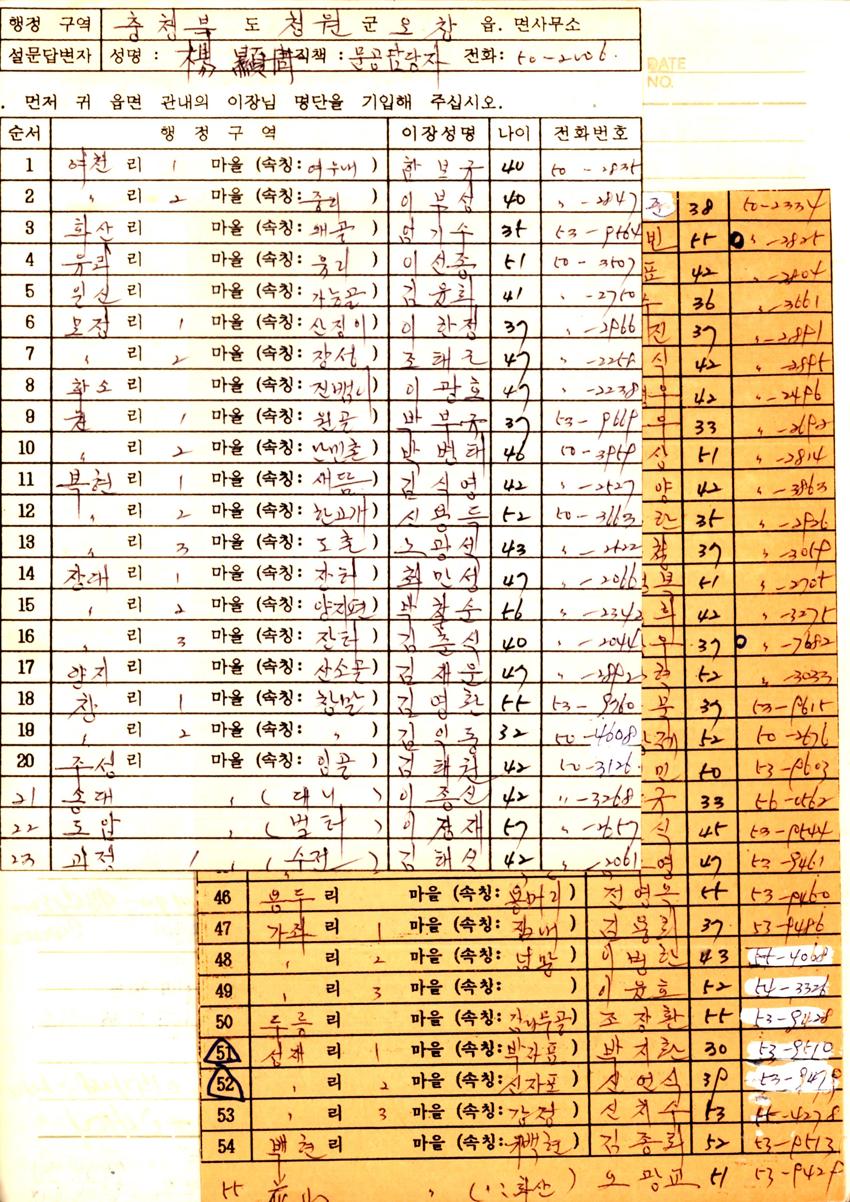 행정 구역 충청북 도 청원 군 오창 읍. 면사무소
설문답변자 성명 : 楊 직책 : 문공담당자 전화: 50-2006.
. 먼저 귀 읍면 관내의 이장님 명단을 기입해 주십시오.
순서 행 정 구 역 이장성명 나이 전화번호
1 여천 리 1 마을 (속칭: 여우내 ) 함보국 40 50-2835
2 〃 리 2 마을 (속칭: 중리 ) 이부성 40 〃-2847
3 화산 리 마을 (속칭: ) 엄기수 35 53-9564
4 유리 리 마을 (속칭: 유리 ) 이선종 51 50-3507
5 리 마을 (속칭: 가는골 ) 김윤회 41 〃-2750
6 모정 리 1 마을 (속칭: 산정이 ) 이한정 37 〃-2966
7 〃 리 2 마을 (속칭: 장성 ) 조태 47 〃-2258
8 학소 리 마을 (속칭: ) 이광호 47 〃-2238
9 리 1 마을 (속칭: 원골 ) 박부규 37 53-9669
10 〃 리 2 마을 (속칭: ) 박병태 46 50-3959
11 복현 리 1 마을 (속칭: 새뜸 ) 김식영 42 〃-2527
12 〃 리 2 마을 (속칭: 한고개 ) 신용득 52 50-3663
13 〃 리 3 마을 (속칭: ) 노광석 43 〃-2422
14 장대 리 1 마을 (속칭: 잔터 ) 최만성 47 〃-2066
15 〃 리 2 마을 (속칭: 양지편 ) 박찬순 56 〃-2342
16 〃 리 3 마을 (속칭: 잔터 ) 김춘식 40 〃-2044
17 양지 리 마을 (속칭: 산소골 ) 김재운 47 〃-2892
18 창 리 1 마을 (속칭: 창말 ) 김영환 55 53-9760
19 〃 리 2 마을 (속칭: 〃 ) 김익동 32 50-4608
20 주성 리 마을 (속칭: 임골 ) 김태천 42 50-3126
21 송대 〃 ( 대니 ) 이종신 42 〃-3268
22 도암 〃 ( 벌터 ) 이 재 57 〃-2657
23 과정 〃 ( 수정 ) 김태석 42 〃-2061
DATE
NO.
준 38 50-2334
빈 55 〃-2825
표 42 〃-2804
수 36 〃-3661
진 37 〃-2891
식 42 〃-2895
우 42 〃-2496
무 33 〃-2692
삼 51 〃-2814
양 42 〃-3863
란 35 〃-2926
37 〃-3059
부 51 〃-2705
희 42 〃-3275
우 37 〃-7682
현 52 〃-3033
37 53-9615
52 50-2676
민 50 53-9603
규 33 56-0562
식 45 53-9544
영 47 53-9461
46 용두 리 마을 (속칭: 용머리 ) 전영옥 55 53-9460
47 가좌 리 1 마을 (속칭: ) 김용희 37 53-9486
48 〃 리 2 마을 (속칭: ) 이범한 43 55-4068
49 〃 리 3 마을 (속칭: ) 이윤호 52 54-3326
50 두릉 리 마을 (속칭: 김나무골 ) 조장환 55 53-9428
51 성재 리 1 마을 (속칭: ) 박지환 30 53-9510
52 〃 리 2 마을 (속칭: 신자포 ) 신언식 39 53-9479
53 〃 리 3 마을 (속칭: 감정 ) 신치수 53 55-4278
54 백현 리 마을 (속칭: 백현 ) 김종회 52 53-9513
55 〃 ( 화산 ) 오광교 51 53-9429